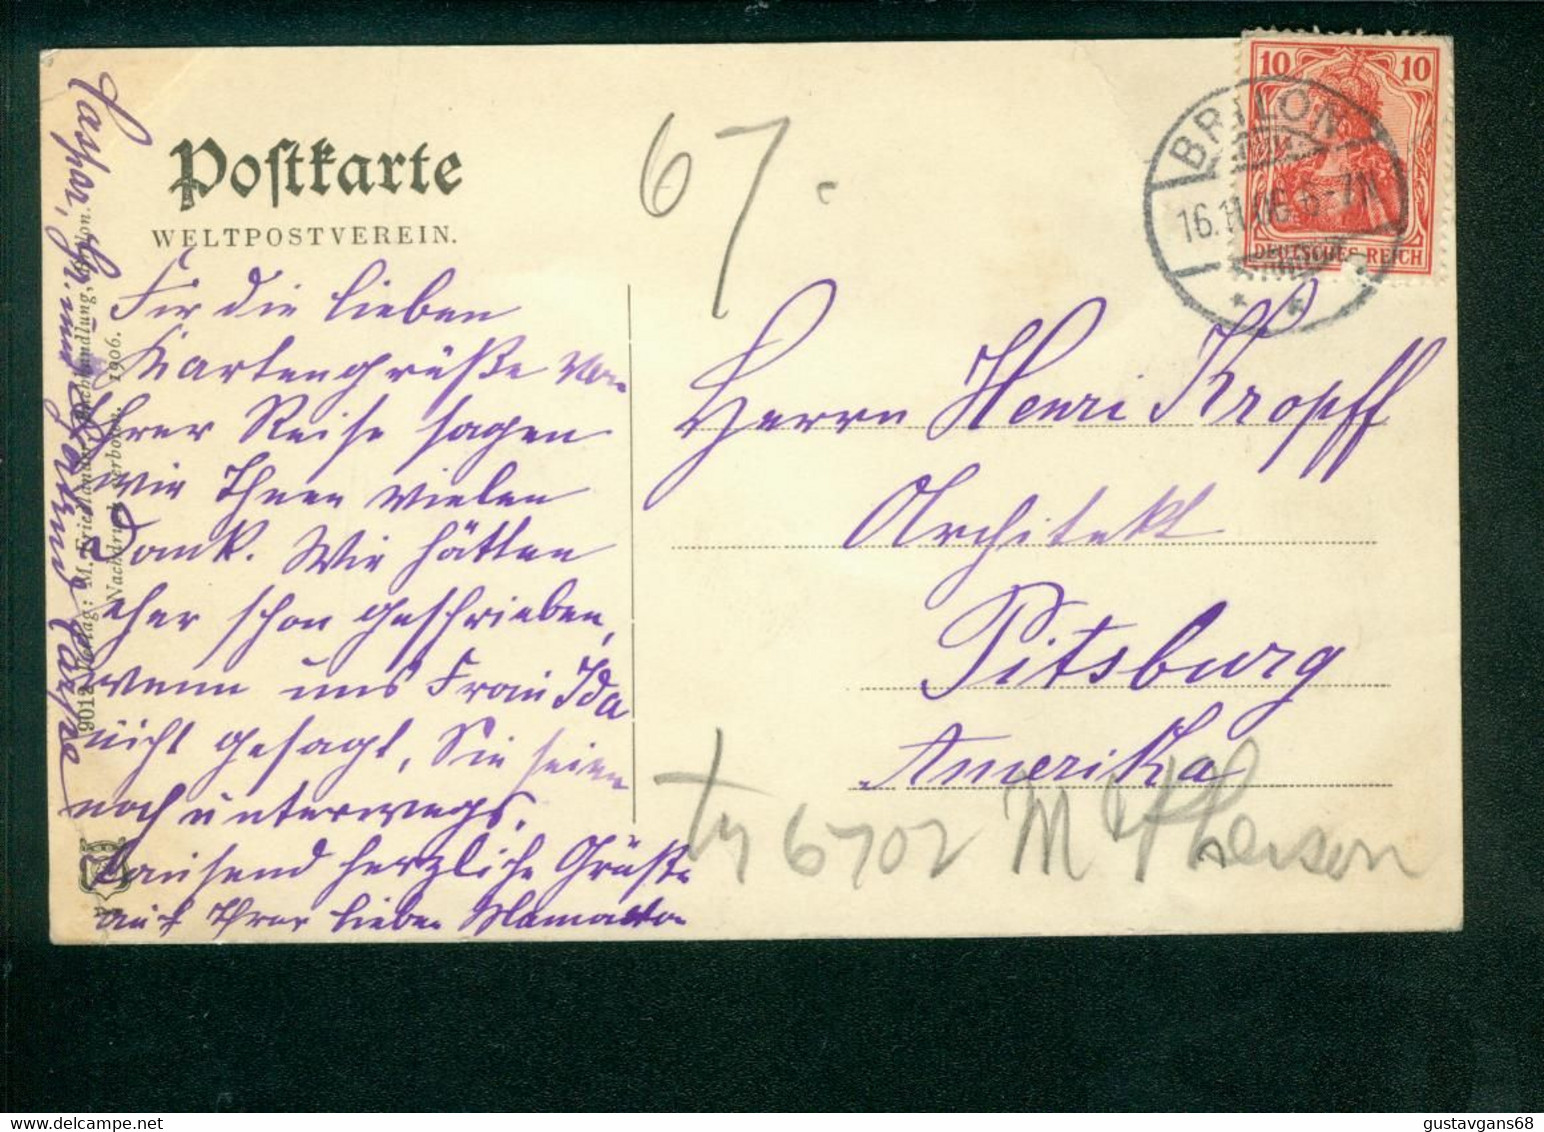 Postkarte
WELTPOSTVEREIN.
67.
BRILON
16.11.06 6-7N
10 10
DEUTSCHES REICH
Für die lieben
Kartengrüße von
Ihrer Reise sagen
wir Ihnen vielen
Dank. Wir hätten
eher schon geschrieben,
wenn uns Frau Ida
nicht gesagt, Sie seien
noch unterwegs.
Tausend herzliche Grüße
auch Ihrer lieben Mama von
Herrn Henri Kropff
Architekt
Pitsburg
Amerika
Try 6702 McPherson
9012 Verlag: M. Friedländer, Buchhandlung, Brilon.
Nachdruck verboten. 1906.
gustavgans68